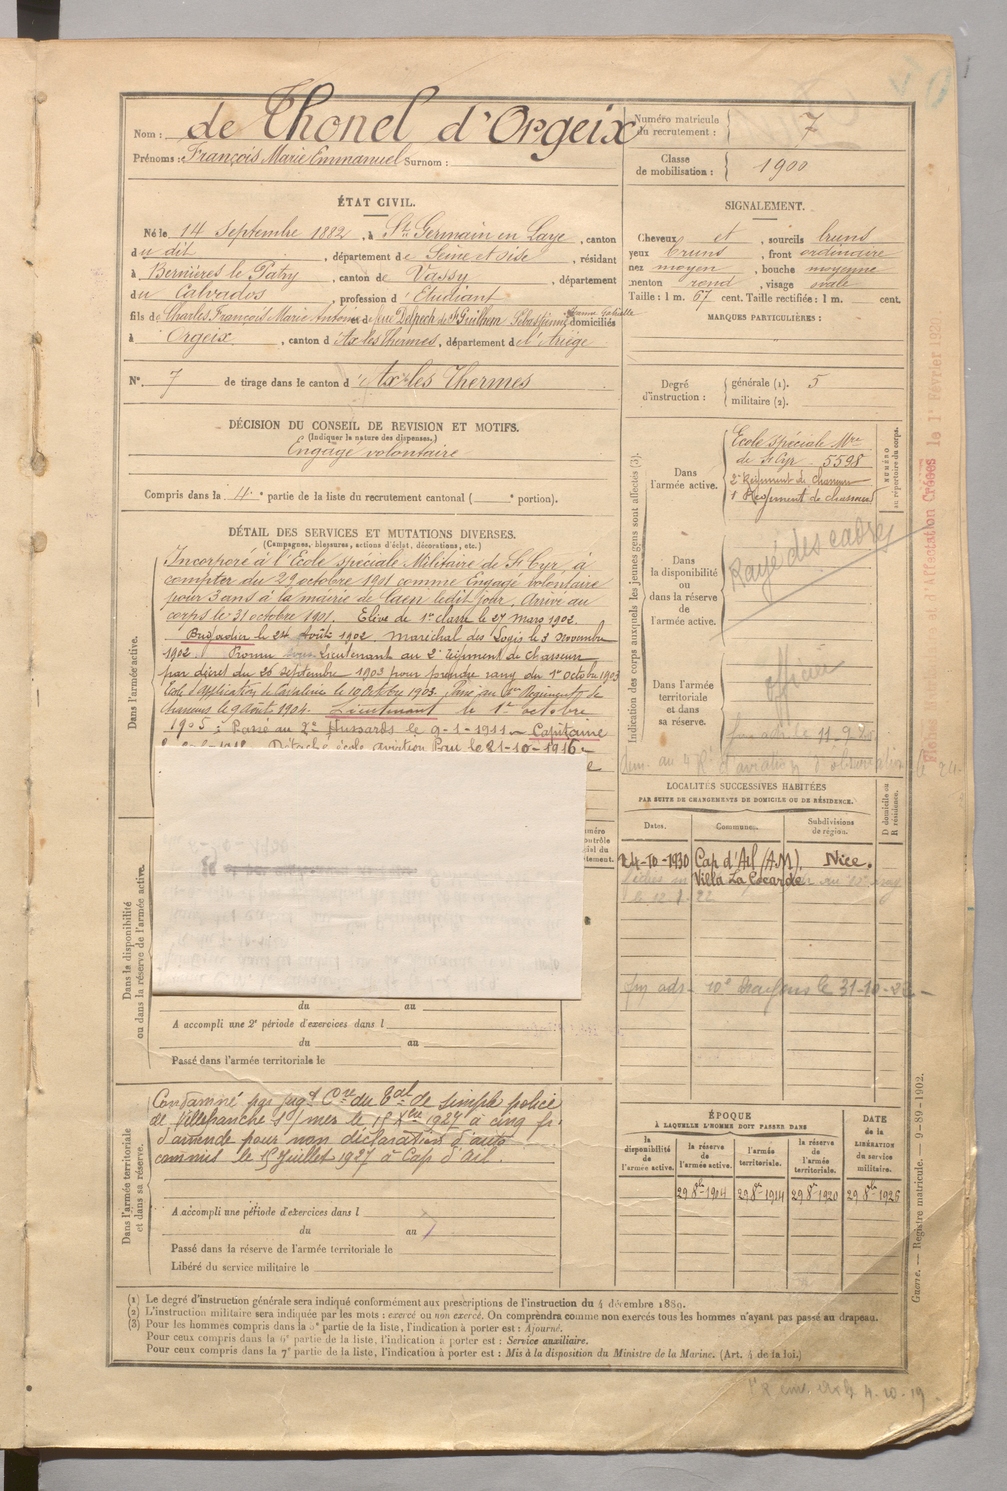 Nom : de Thonel d'Orgeix
Prénoms : François Marie Emmanuel Surnom :
Numéro matricule du recrutement : 7
Classe de mobilisation : 1900
ÉTAT CIVIL.
Né le 14 Septembre 1882, à St Germain en Laye, canton
du dit, département de Seine et Oise, résidant
à Bernières le Patry, canton de Vassy, département
du Calvados, profession d'Etudiant
fils de Charles, François Marie Antoine et de Delpech de St Guilhem Sébastienne domiciliés
à Orgeix, canton d'Ax les Thermes, département de l'Ariège
N° 7 de tirage dans le canton d'Ax les Thermes
SIGNALEMENT.
Cheveux et, sourcils bruns
yeux bruns, front ordinaire
nez moyen, bouche moyenne
menton rond, visage ovale
Taille : 1 m. 67 cent. Taille rectifiée : 1 m. cent.
MARQUES PARTICULIÈRES :
Degré d'instruction : générale (1). 5
militaire (2).
DÉCISION DU CONSEIL DE REVISION ET MOTIFS.
(Indiquer la nature des dispenses.)
Engagé volontaire
Compris dans la 4e partie de la liste du recrutement cantonal ( e portion).
DÉTAIL DES SERVICES ET MUTATIONS DIVERSES.
(Campagnes, blessures, actions d'éclat, décorations, etc.)
Dans l'armée active.
Incorporé à l'Ecole spéciale Militaire de St Cyr, à
compter du 29 octobre 1901 comme Engagé volontaire
pour 3 ans à la mairie de Caen ledit jour. Arrivé au
corps le 31 octobre 1901. Elève de 1re classe le 27 mars 1902.
Brigadier le 24 Août 1902, maréchal des Logis le 3 novembre
1902. Promu sous Lieutenant au 2e régiment de chasseurs
par décret du 26 septembre 1903 pour prendre rang du 1er octobre 1903
Ecole d'Application de Cavalerie le 10 Octobre 1903. Passé au 1er Régiment de
chasseurs le 9 Août 1904. Lieutenant le 1er octobre
1905. Passé au 2e Hussards le 9-1-1911 - Capitaine
Détaché école aviation Pau le 21-10-1916 -
Indication des corps auxquels les jeunes gens sont affectés (3).
Dans l'armée active.
Ecole spéciale Mre
de St Cyr 5598
2e Régiment de chasseurs
1er Régiment de chasseurs
NUMÉRO au répertoire du corps.
Dans la disponibilité ou dans la réserve de l'armée active.
Rayé des cadres
Dans l'armée territoriale et dans sa réserve.
officier
LOCALITÉS SUCCESSIVES HABITÉES
PAR SUITE DE CHANGEMENTS DE DOMICILE OU DE RÉSIDENCE.
Dates. Communes. Subdivisions de région. D domicile ou R résidence.
24-10-1930 Cap d'Ail (A.M). Nice.
Villa La Cocarde
10e Dragons le 31-10-22
Dans la disponibilité ou dans la réserve de l'armée active.
du au
A accompli une 2e période d'exercices dans l
du au
Passé dans l'armée territoriale le
Dans l'armée territoriale et dans sa réserve.
Condamné par jugt Cre du Tbal de simple police
de Villefranche s/ mer le 15 Xbre 1927 à cinq fr.
d'amende pour non déclaration d'auto
commis le 15 Juillet 1927 à Cap d'Ail.
A accompli une période d'exercices dans l
du au
Passé dans la réserve de l'armée territoriale le
Libéré du service militaire le
ÉPOQUE
À LAQUELLE L'HOMME DOIT PASSER DANS
la disponibilité de l'armée active. la réserve de l'armée active. l'armée territoriale. la réserve de l'armée territoriale. DATE de la LIBÉRATION du service militaire.
29 8bre 1904 29 8bre 1914 29 8bre 1920 29 8bre 1926
(1) Le degré d'instruction générale sera indiqué conformément aux prescriptions de l'instruction du 4 décembre 1889.
(2) L'instruction militaire sera indiquée par les mots : exercé ou non exercé. On comprendra comme non exercés tous les hommes n'ayant pas passé au drapeau.
(3) Pour les hommes compris dans la 5e partie de la liste, l'indication à porter est : Ajourné.
Pour ceux compris dans la 6e partie de la liste, l'indication à porter est : Service auxiliaire.
Pour ceux compris dans la 7e partie de la liste, l'indication à porter est : Mis à la disposition du Ministre de la Marine. (Art. 4 de la loi.)
Guerre. — Registre matricule. — 9-89-1902.